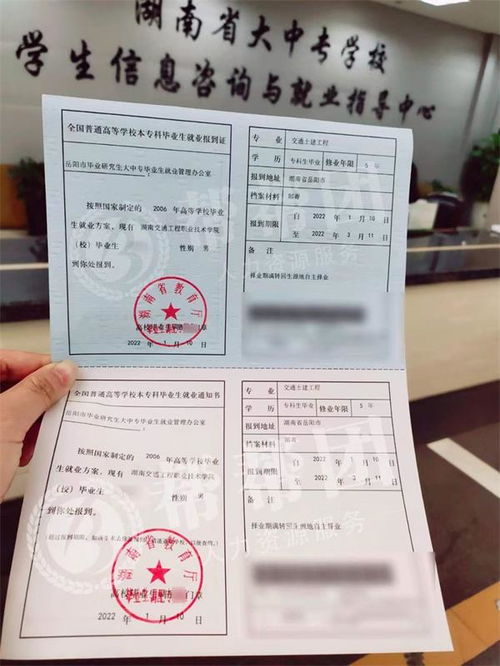 湖南省大中专学校
学生信息咨询与就业指导中心
全国普通高等学校本专科毕业生就业报到证
岳阳市毕业研究生大中专毕业生就业管理办公室
按照国家制定的 2006 年高等学校毕业
生就业方案,现有 湖南交通工程职业技术学院
(校)毕业生 性别 男
到你处报到。
湖南省教育厅
2022 年 1 月 10 日
专业 交通土建工程
学历 专科生毕业 修业年限 5 年
报到地址 湖南省岳阳市
档案材料 邮寄
报到期限 自 2022 年 1 月 10 日
至 2022 年 3 月 11 日
备注
择业期满转回生源地自主择业
帮帮团
人力资源服务
全国普通高等学校本专科毕业生就业通知书
岳阳市毕业研究生大中专毕业生就业管理办公室
按照国家制定的 2006 年高等学校毕业
生就业方案,现有 湖南交通工程职业技术学院
(校)毕业生 性别 男
到你处报到。
湖南省教育厅
2022 年 1 月 10 日
专业 交通土建工程
学历 专科生毕业 修业年限 5 年
报到地址 湖南省岳阳市
档案材料 邮寄
报到期限 自 2022 年 1 月 10 日
至 2022 年 3 月 11 日
备注
择业期满转回生源地自主择业
帮帮团
人力资源服务